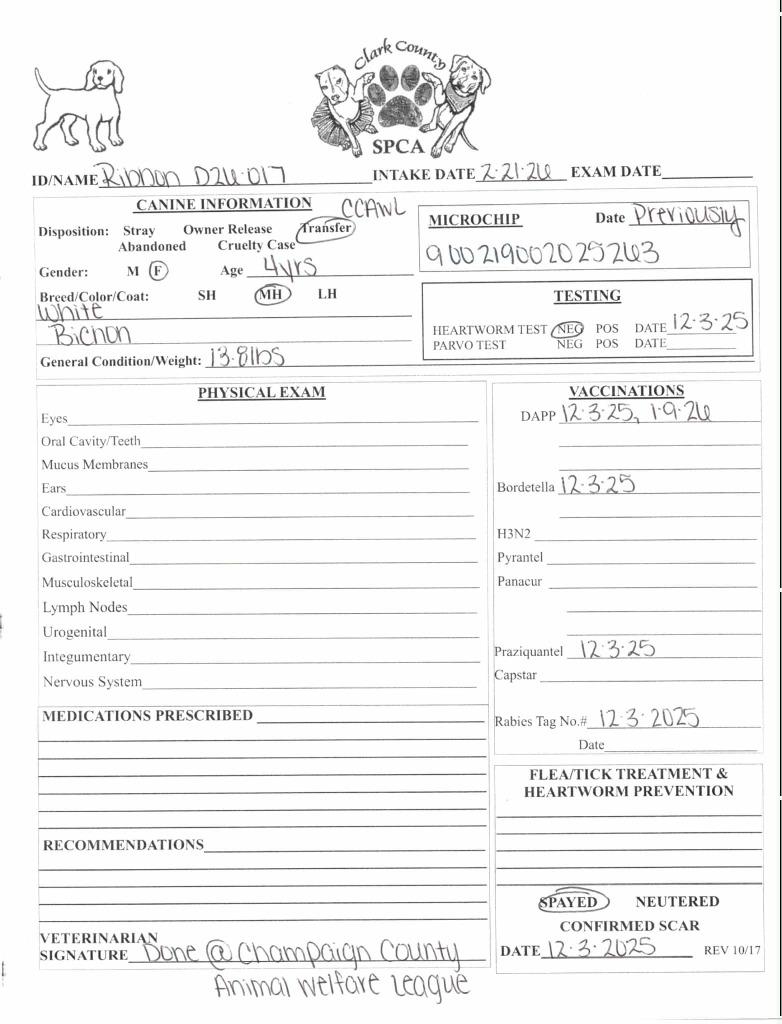 Clark County
SPCA
ID/NAME Ribbon D26-017 INTAKE DATE 2-21-26 EXAM DATE
CANINE INFORMATION CCAWL
Disposition: Stray Owner Release Transfer
Abandoned Cruelty Case
Gender: M F Age 4yrs
Breed/Color/Coat: SH MH LH
White
Bichon
General Condition/Weight: 13.8lbs
MICROCHIP Date Previously
900219002025263
TESTING
HEARTWORM TEST NEG POS DATE 12-3-25
PARVO TEST NEG POS DATE
PHYSICAL EXAM
Eyes
Oral Cavity/Teeth
Mucus Membranes
Ears
Cardiovascular
Respiratory
Gastrointestinal
Musculoskeletal
Lymph Nodes
Urogenital
Integumentary
Nervous System
VACCINATIONS
DAPP 12-3-25, 1-9-26
Bordetella 12-3-25
H3N2
Pyrantel
Panacur
Praziquantel 12-3-25
Capstar
Rabies Tag No.# 12-3-2025
Date
MEDICATIONS PRESCRIBED
RECOMMENDATIONS
VETERINARIAN
SIGNATURE Done @ Champaign County
Animal Welfare League
FLEA/TICK TREATMENT &
HEARTWORM PREVENTION
SPAYED NEUTERED
CONFIRMED SCAR
DATE 12-3-2025 REV 10/17